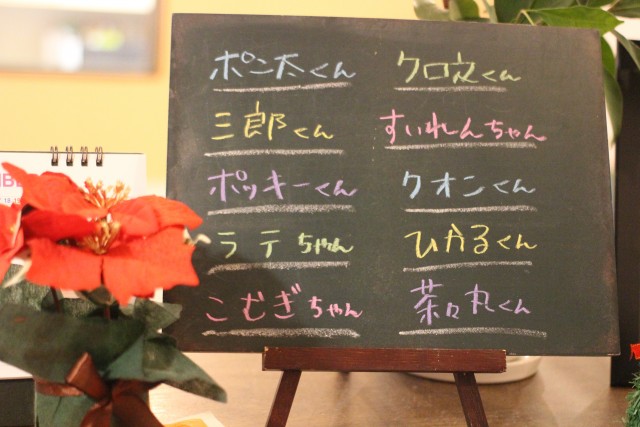 ポン太くん
三郎くん
ポッキーくん
ラテちゃん
こむぎちゃん
クロ之くん
すいれんちゃん
クオンくん
ひかるくん
茶々丸くん